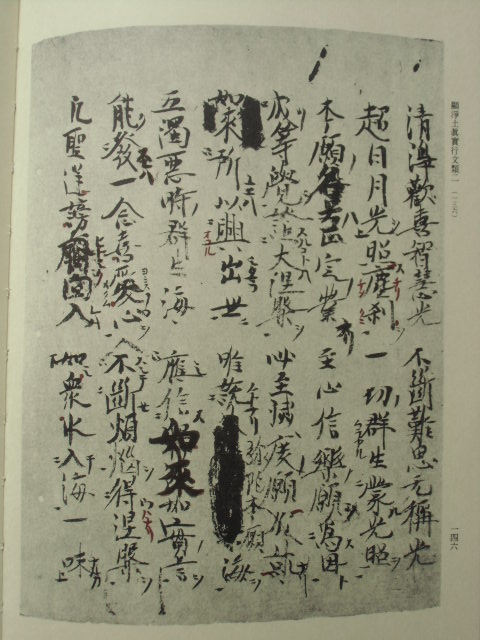 顯淨土眞實行文類二(一三六)
清淨歡喜智慧光 不斷難思无稱光
超日月光照塵刹 一切群生蒙光照
本願名号正定業 至心信樂願爲因
成等覺證大涅槃 必至滅度願成就
如來所以興出世 唯説 弥陀本願海
五濁惡時群生海 應信如來如實言
能發一念喜愛心 不斷煩惱得涅槃
凡聖逆謗齊回入 如衆水入海一味
一四六